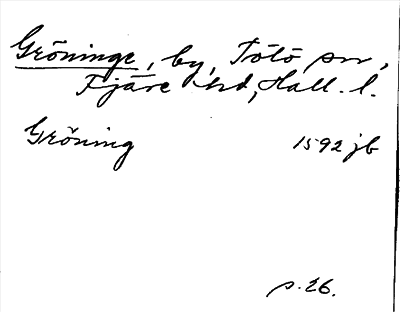 Gröninge, by, Tölö sn,
Fjäre hd, Hall. l.
Gröning 1592 jb
s. 26.